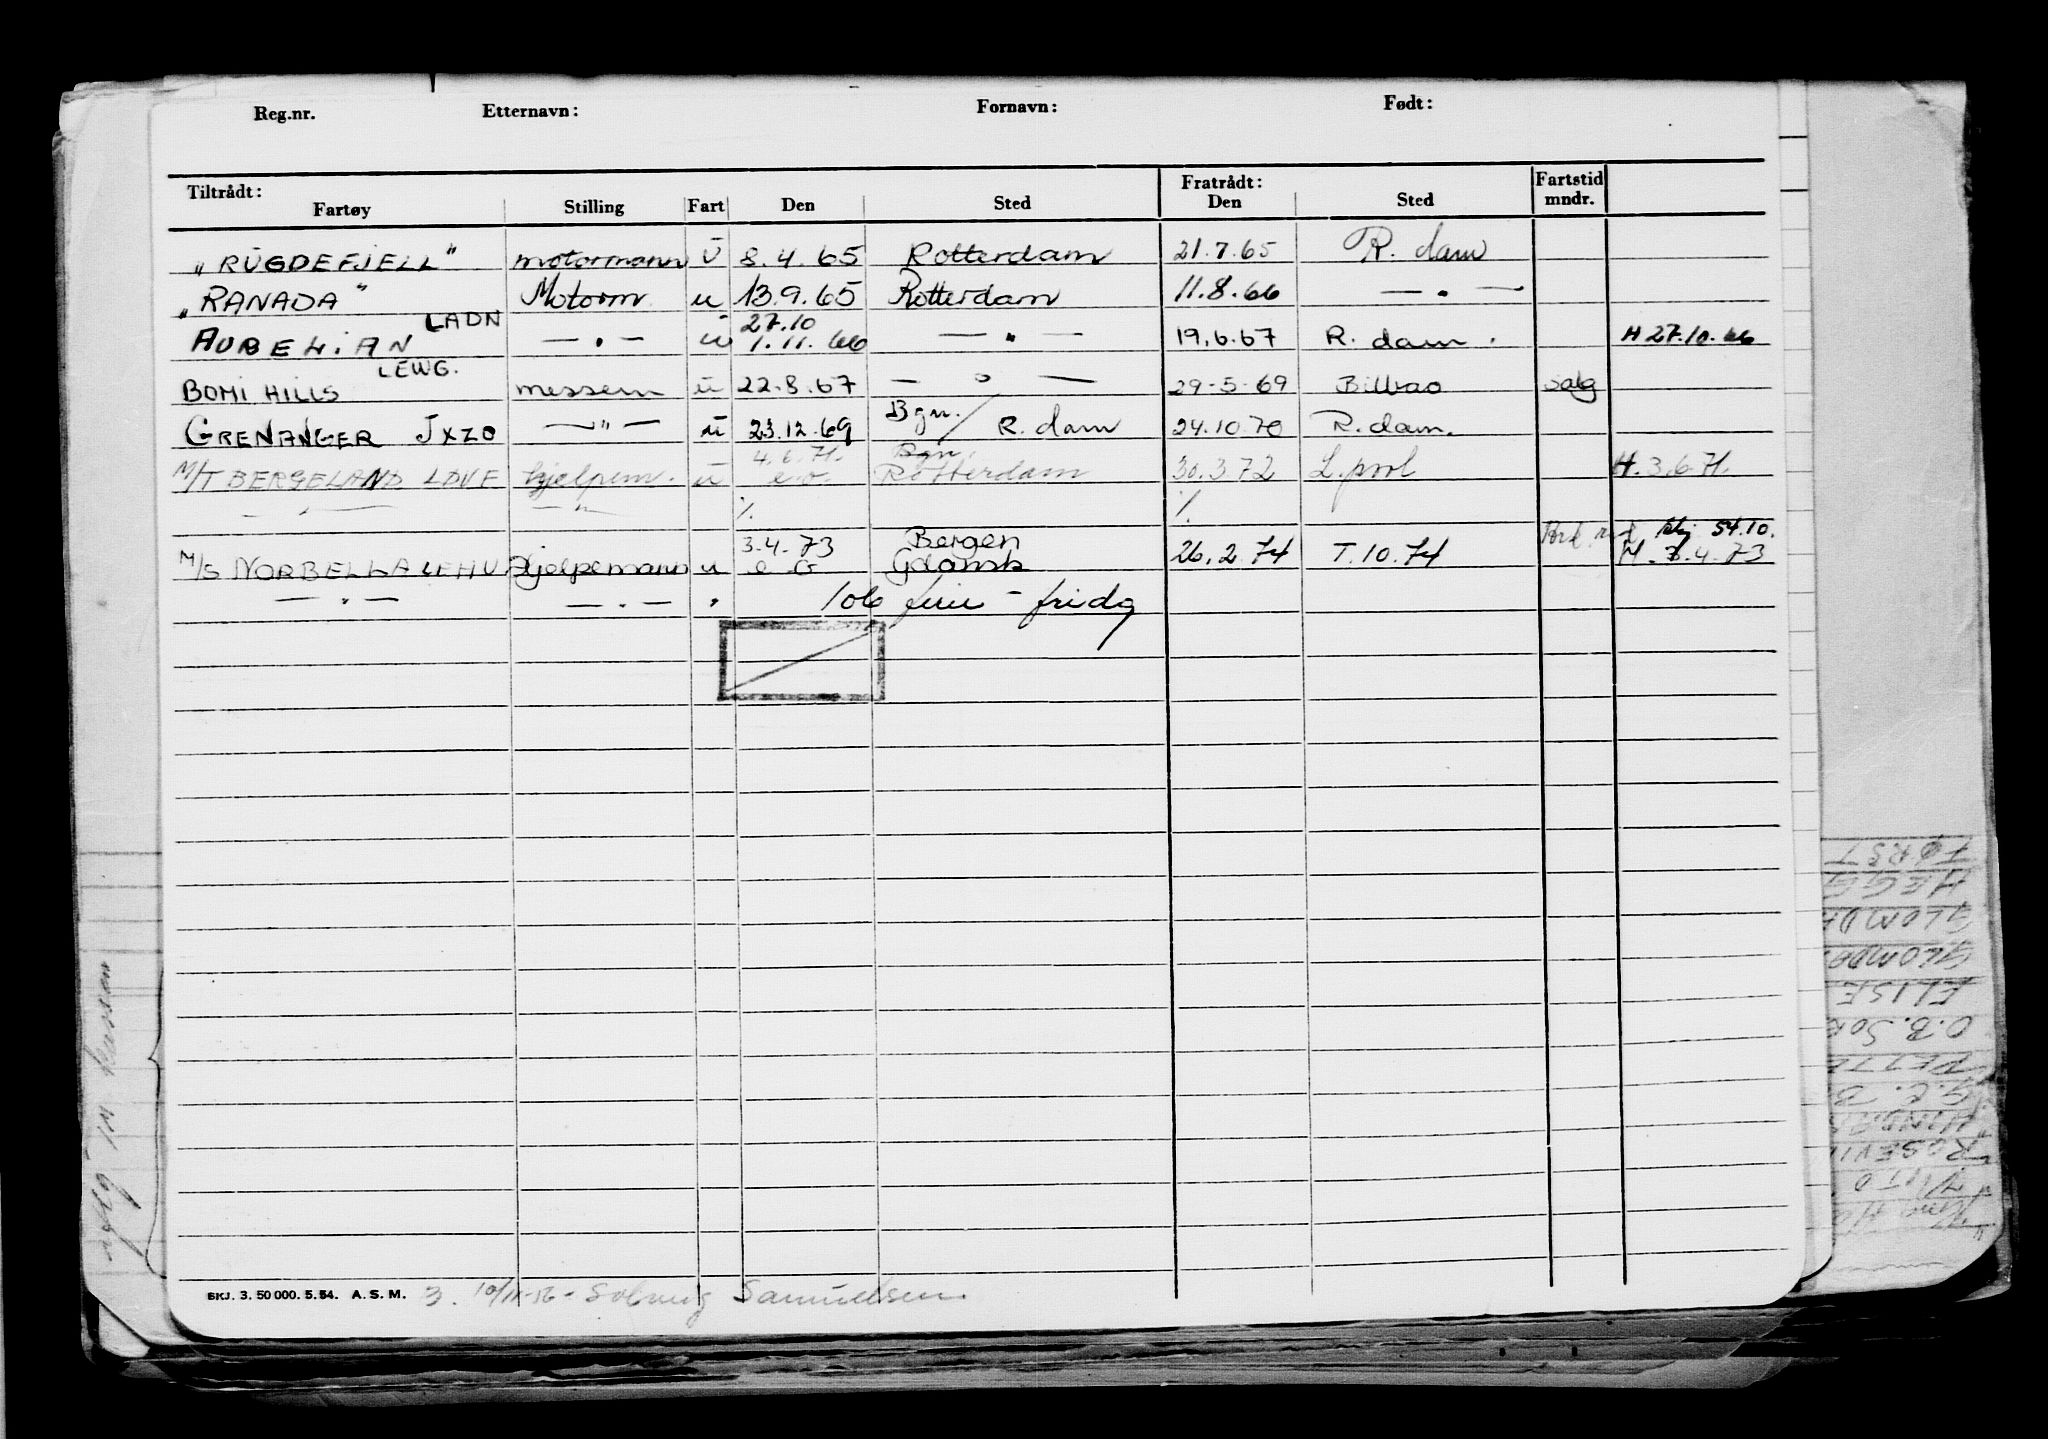 Reg.nr. Etternavn: Fornavn: Født:
Tiltrådt: Fratrådt: Fartstid
Fartøy Stilling Fart Den Sted Den Sted mndr.
"RUGDEFJELL" motormann u 8.4.65 Rotterdam 21.7.65 R.dam
"RANADA" Motorm u 13.9.65 Rotterdam 11.8.66 — " —
LADN 27.10
AURELIAN — " — u 1.11.66 — " — 19.6.67 R.dam. H 27.10.66
LEWG.
BOMI HILLS messem u 22.8.67 — " — 29-5-69 Bilbao salg
GRENANGER JXZO — " — u 23.12.69 Bgn./R.dam 24.10.70 R.dam.
4.6.71. Bgn.
M/T BERGELAND LDVE hjelpem. u e.o. Rotterdam 30.3.72 L.pool H.3.6.71.
— " — — " — %. %.
3.4.73 Bergen 54.10.
M/S NORBELLA LEHU Hjelpemann u e o Gdansk 26.2.74 T.10.74 H.3.4.73
— " — — " — " 106 ferie - fridg
BKJ. 3. 50 000. 5. 54. A. S. M. 3. 10/11-56 - Solveig Samuelsen.
FØRST
HEGG
GLOMDA
GLOMDA
ELISE
O.B. SØR
PETTE
G.C. B
ROSEVI
VITO